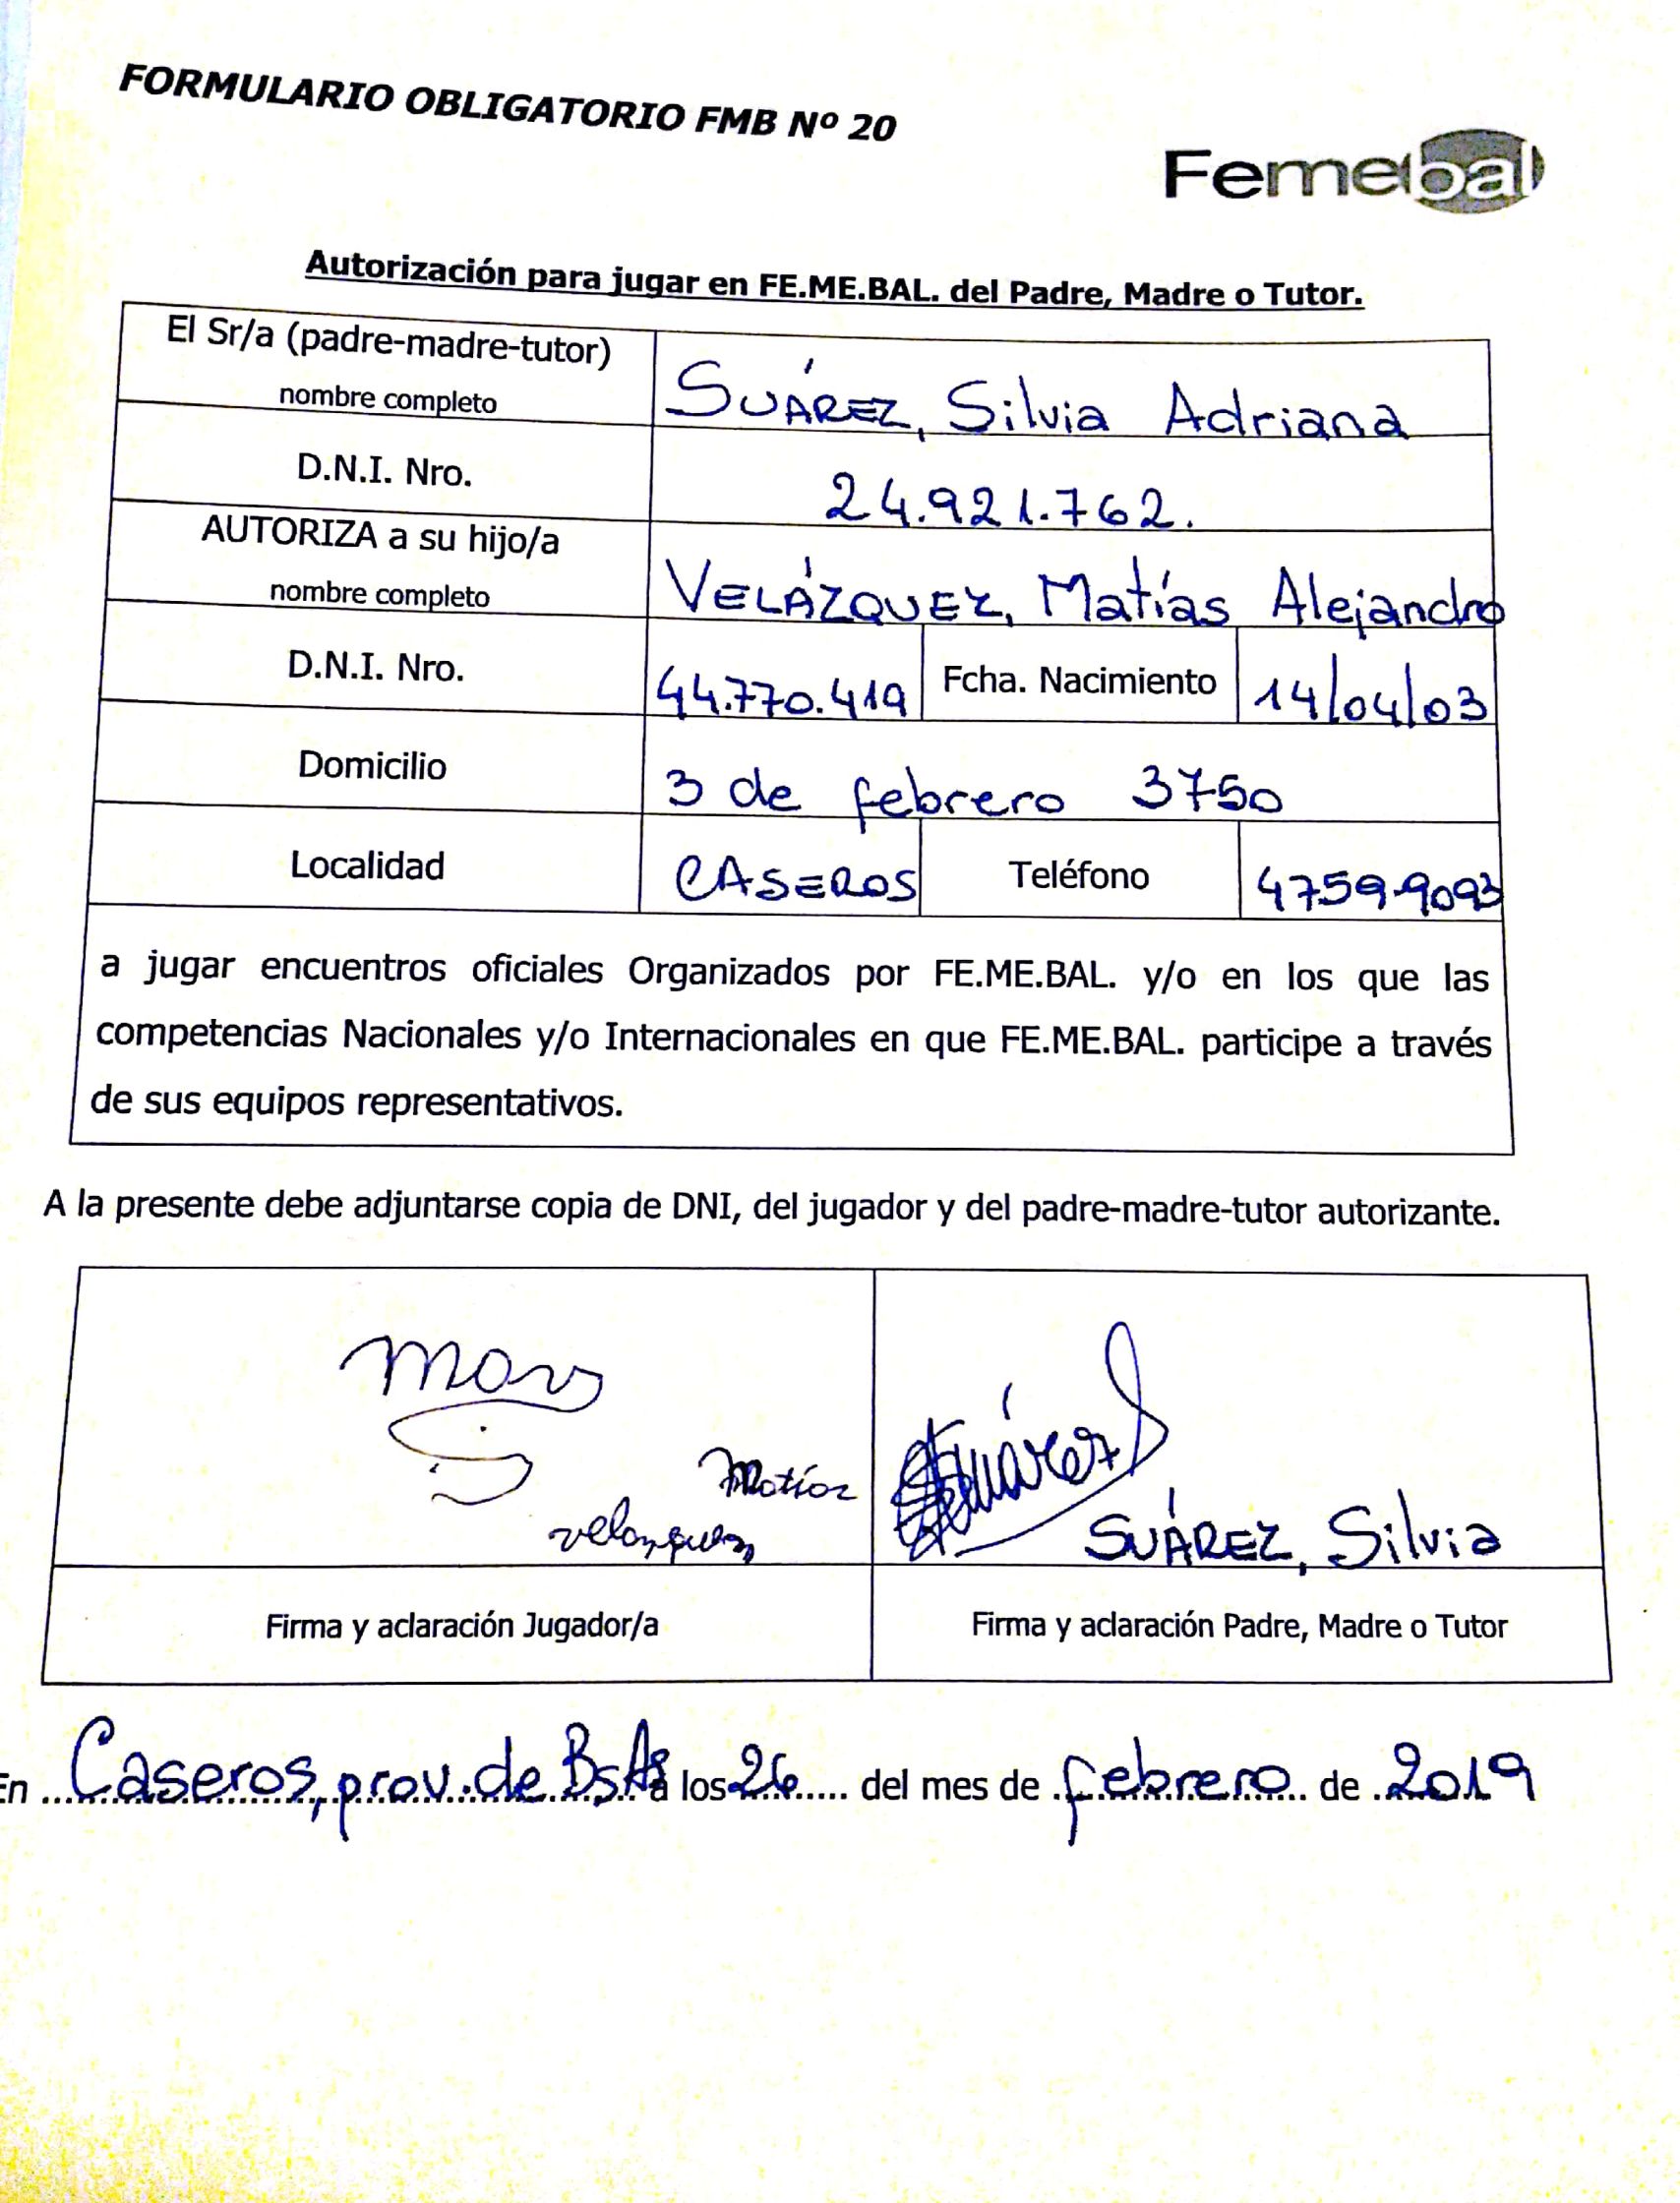 FORMULARIO OBLIGATORIO FMB Nº 20
Femebal
Autorización para jugar en FE.ME.BAL. del Padre, Madre o Tutor.
El Sr/a (padre-madre-tutor)
nombre completo
SUÁREZ, Silvia Adriana
D.N.I. Nro.
24.921.762.
AUTORIZA a su hijo/a
nombre completo
VELÁZQUEZ, Matías Alejandro
D.N.I. Nro.
44.770.419
Fcha. Nacimiento
14/04/03
Domicilio
3 de febrero 3750
Localidad
CASEROS
Teléfono
4759-9093
a jugar encuentros oficiales Organizados por FE.ME.BAL. y/o en los que las
competencias Nacionales y/o Internacionales en que FE.ME.BAL. participe a través
de sus equipos representativos.
A la presente debe adjuntarse copia de DNI, del jugador y del padre-madre-tutor autorizante.
Matías
Velazquez
Suárez
SUÁREZ, Silvia
Firma y aclaración Jugador/a
Firma y aclaración Padre, Madre o Tutor
En Caseros, prov. de Bs As a los 26 del mes de febrero de 2019